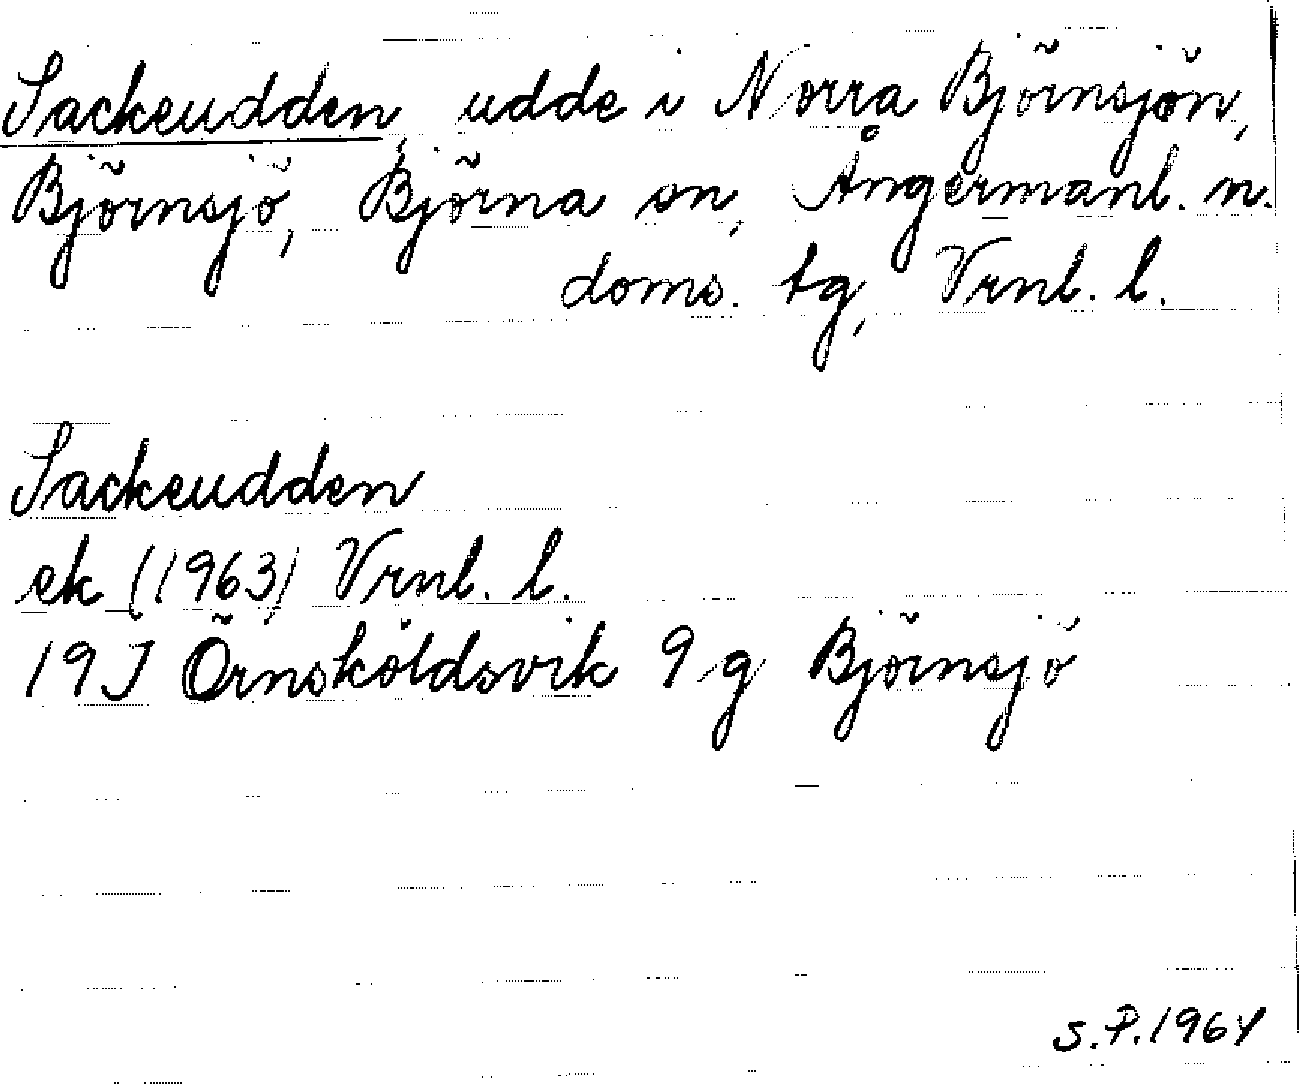 Sackeudden, udde i Norra Björnsjön,
Björnsjö, Björna sn, Ångermanl. n.
doms. tg, Vrnl. l.
Sackeudden
ek (1963) Vrnl. l.
19J Örnsköldsvik 9 g Björnsjö
S.P.1964